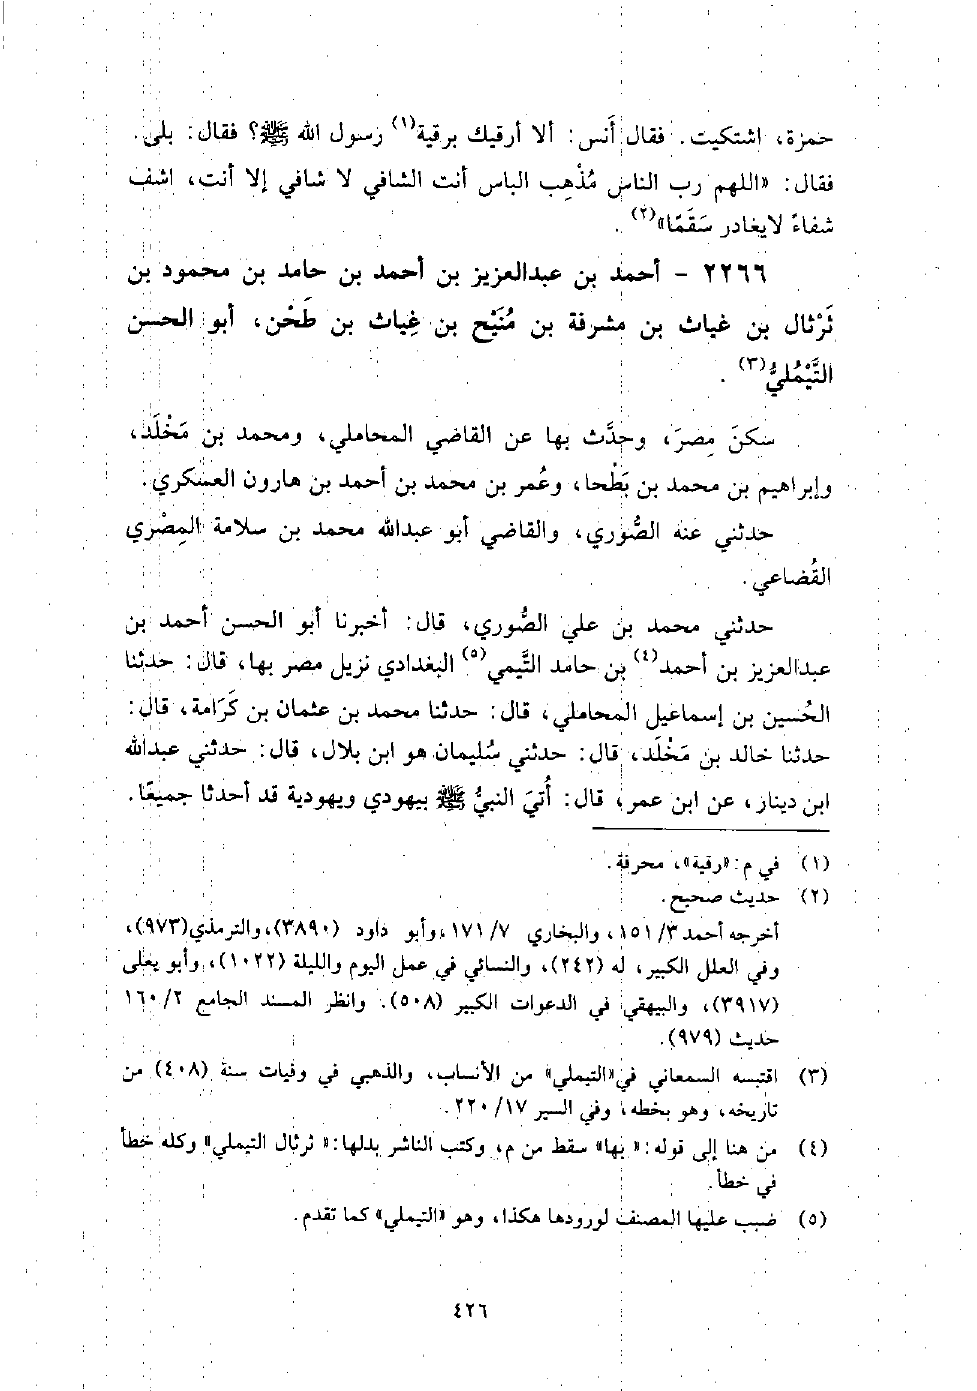 حمزة، اشتكيت. فقال أَنس: ألا أرقيك برقية(١) رسول الله ﷺ؟ فقال: بلى.
فقال: «اللهم رب الناس مُذْهِب الباس أنت الشافي لا شافي إلا أنت، اشف
شفاءً لايغادر سَقَمًا»(٢).
٢٢٦٦ - أحمد بن عبدالعزيز بن أحمد بن حامد بن محمود بن
ثَرْثال بن غياث بن مشرفة بن مُنَيْح بن غِياث بن طَحْن، أبو الحسن
التَّيْمُليُّ(٣).
سكنَ مِصرَ، وحدَّث بها عن القاضي المحاملي، ومحمد بن مَخْلَد،
وإبراهيم بن محمد بن بَطْحا، وعُمر بن محمد بن أحمد بن هارون العسكري.
حدثني عنه الصُّوري، والقاضي أبو عبدالله محمد بن سلامة المِصْري
القُضاعي.
حدثني محمد بن علي الصُّوري، قال: أخبرنا أبو الحسن أحمد بن
عبدالعزيز بن أحمد(٤) بن حامد التَّيمي(٥) البغدادي نزيل مصر بها، قال: حدثنا
الحُسين بن إسماعيل المحاملي، قال: حدثنا محمد بن عثمان بن كَرَامة، قال:
حدثنا خالد بن مَخْلَد، قال: حدثني سُليمان هو ابن بلال، قال: حدثني عبدالله
ابن دينار، عن ابن عمر، قال: أُتيَ النبيُّ ﷺ بيهودي ويهودية قد أحدثا جميعًا.
(١) في م: «رقية»، محرفة.
(٢) حديث صحيح.
أخرجه أحمد ٣/ ١٥١، والبخاري ٧/ ١٧١، وأبو داود (٣٨٩٠)، والترمذي(٩٧٣)،
وفي العلل الكبير، له (٢٤٢)، والنسائي في عمل اليوم والليلة (١٠٢٢)، وأبو يعلى
(٣٩١٧)، والبيهقي في الدعوات الكبير (٥٠٨). وانظر المسند الجامع ٢/ ١٦٠
حديث (٩٧٩).
(٣) اقتبسه السمعاني في«التيملي» من الأنساب، والذهبي في وفيات سنة (٤٠٨) من
تاريخه، وهو بخطه، وفي السير ١٧/ ٢٢٠.
(٤) من هنا إلى قوله: «بها» سقط من م، وكتب الناشر بدلها: «ثرثال التيملي» وكله خطأ
في خطأ.
(٥) ضبب عليها المصنف لورودها هكذا، وهو «التيملي» كما تقدم.
٤٢٦